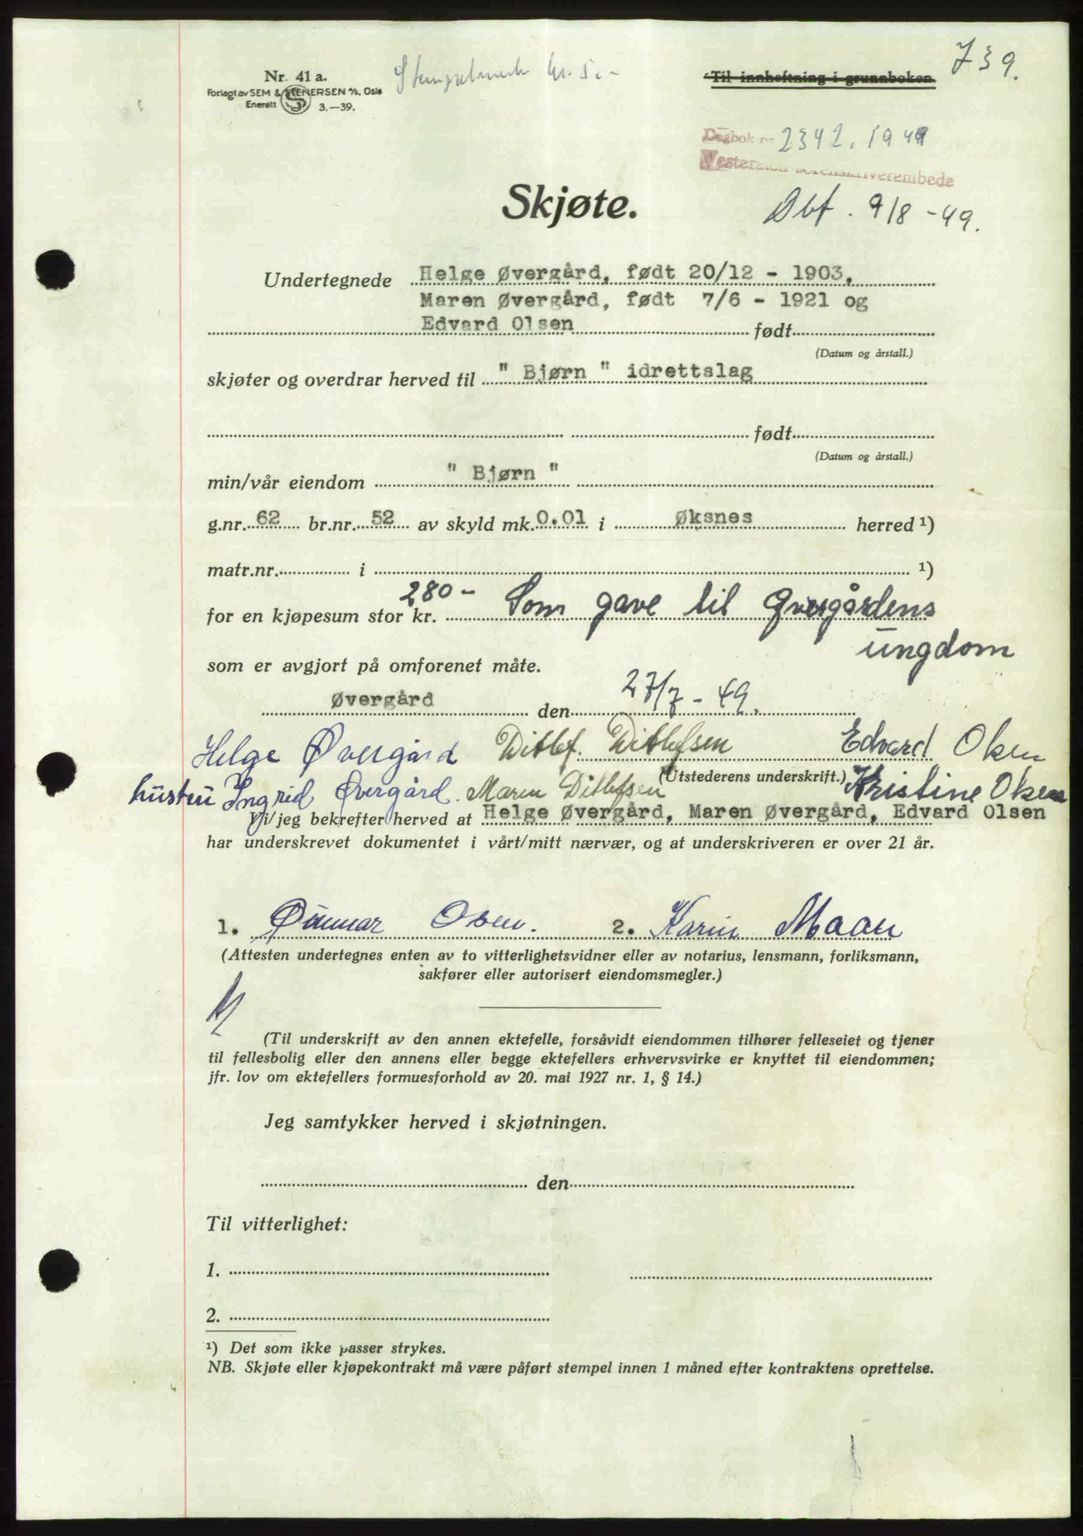 739.
Nr. 41 a.
Stempelmerke kr. 5.-
Til innheftning i grunnboken.
Forlagt av SEM & STENERSEN A/S, Oslo
Enerett S 3.—39.
Dagbok nr 2342. 1949
Vesterålen sorenskriverembede
Skjøte.
Dbf. 9/8 - 49.
Undertegnede Helge Øvergård, født 20/12 - 1903,
Maren Øvergård, født 7/6 - 1921 og
Edvard Olsen født
(Datum og årstall.)
skjøter og overdrar herved til " Bjørn " idrettslag
født
(Datum og årstall.)
min/vår eiendom " Bjørn "
g.nr. 62 br.nr. 52 av skyld mk. 0.01 i Øksnes herred ¹)
matr.nr. i ¹)
for en kjøpesum stor kr. 280- Som gave til Øvergårdens
ungdom
som er avgjort på omforenet måte.
Øvergård den 27/7 - 49.
Helge Øvergård Ditlef. Ditlefsen Edvard Olsen
(Utstederens underskrift.)
hustru Ingrid Øvergård. Maren Ditlefsen Kristine Olsen
Vi/jeg bekrefter herved at Helge Øvergård, Maren Øvergård, Edvard Olsen
har underskrevet dokumentet i vårt/mitt nærvær, og at underskriveren er over 21 år.
1. Gunnar Olsen. 2. Karin Maan
(Attesten undertegnes enten av to vitterlighetsvidner eller av notarius, lensmann, forliksmann,
sakfører eller autorisert eiendomsmegler.)
(Til underskrift av den annen ektefelle, forsåvidt eiendommen tilhører felleseiet og tjener
til fellesbolig eller den annens eller begge ektefellers erhvervsvirke er knyttet til eiendommen;
jfr. lov om ektefellers formuesforhold av 20. mai 1927 nr. 1, § 14.)
Jeg samtykker herved i skjøtningen.
den
Til vitterlighet:
1.
2.
¹) Det som ikke passer strykes.
NB. Skjøte eller kjøpekontrakt må være påført stempel innen 1 måned efter kontraktens oprettelse.